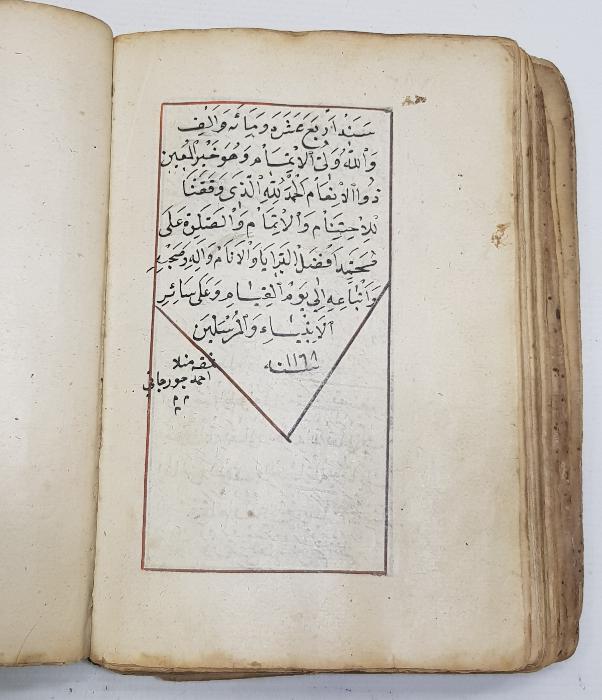 سنة اربع عشرة ومائة والف
والله ولى الاتمام وهو خير المعين
ذو الانعام الحمد لله الذى وفقنا
للاختتام والاتمام والصلوة على
محمد افضل البرايا والانام واله وصحبه
واتباعه الى يوم القيام وعلى سائر
الانبياء والمرسلين
سنه ١١٦٨
نمقه منلا
احمد جورجاني
م م